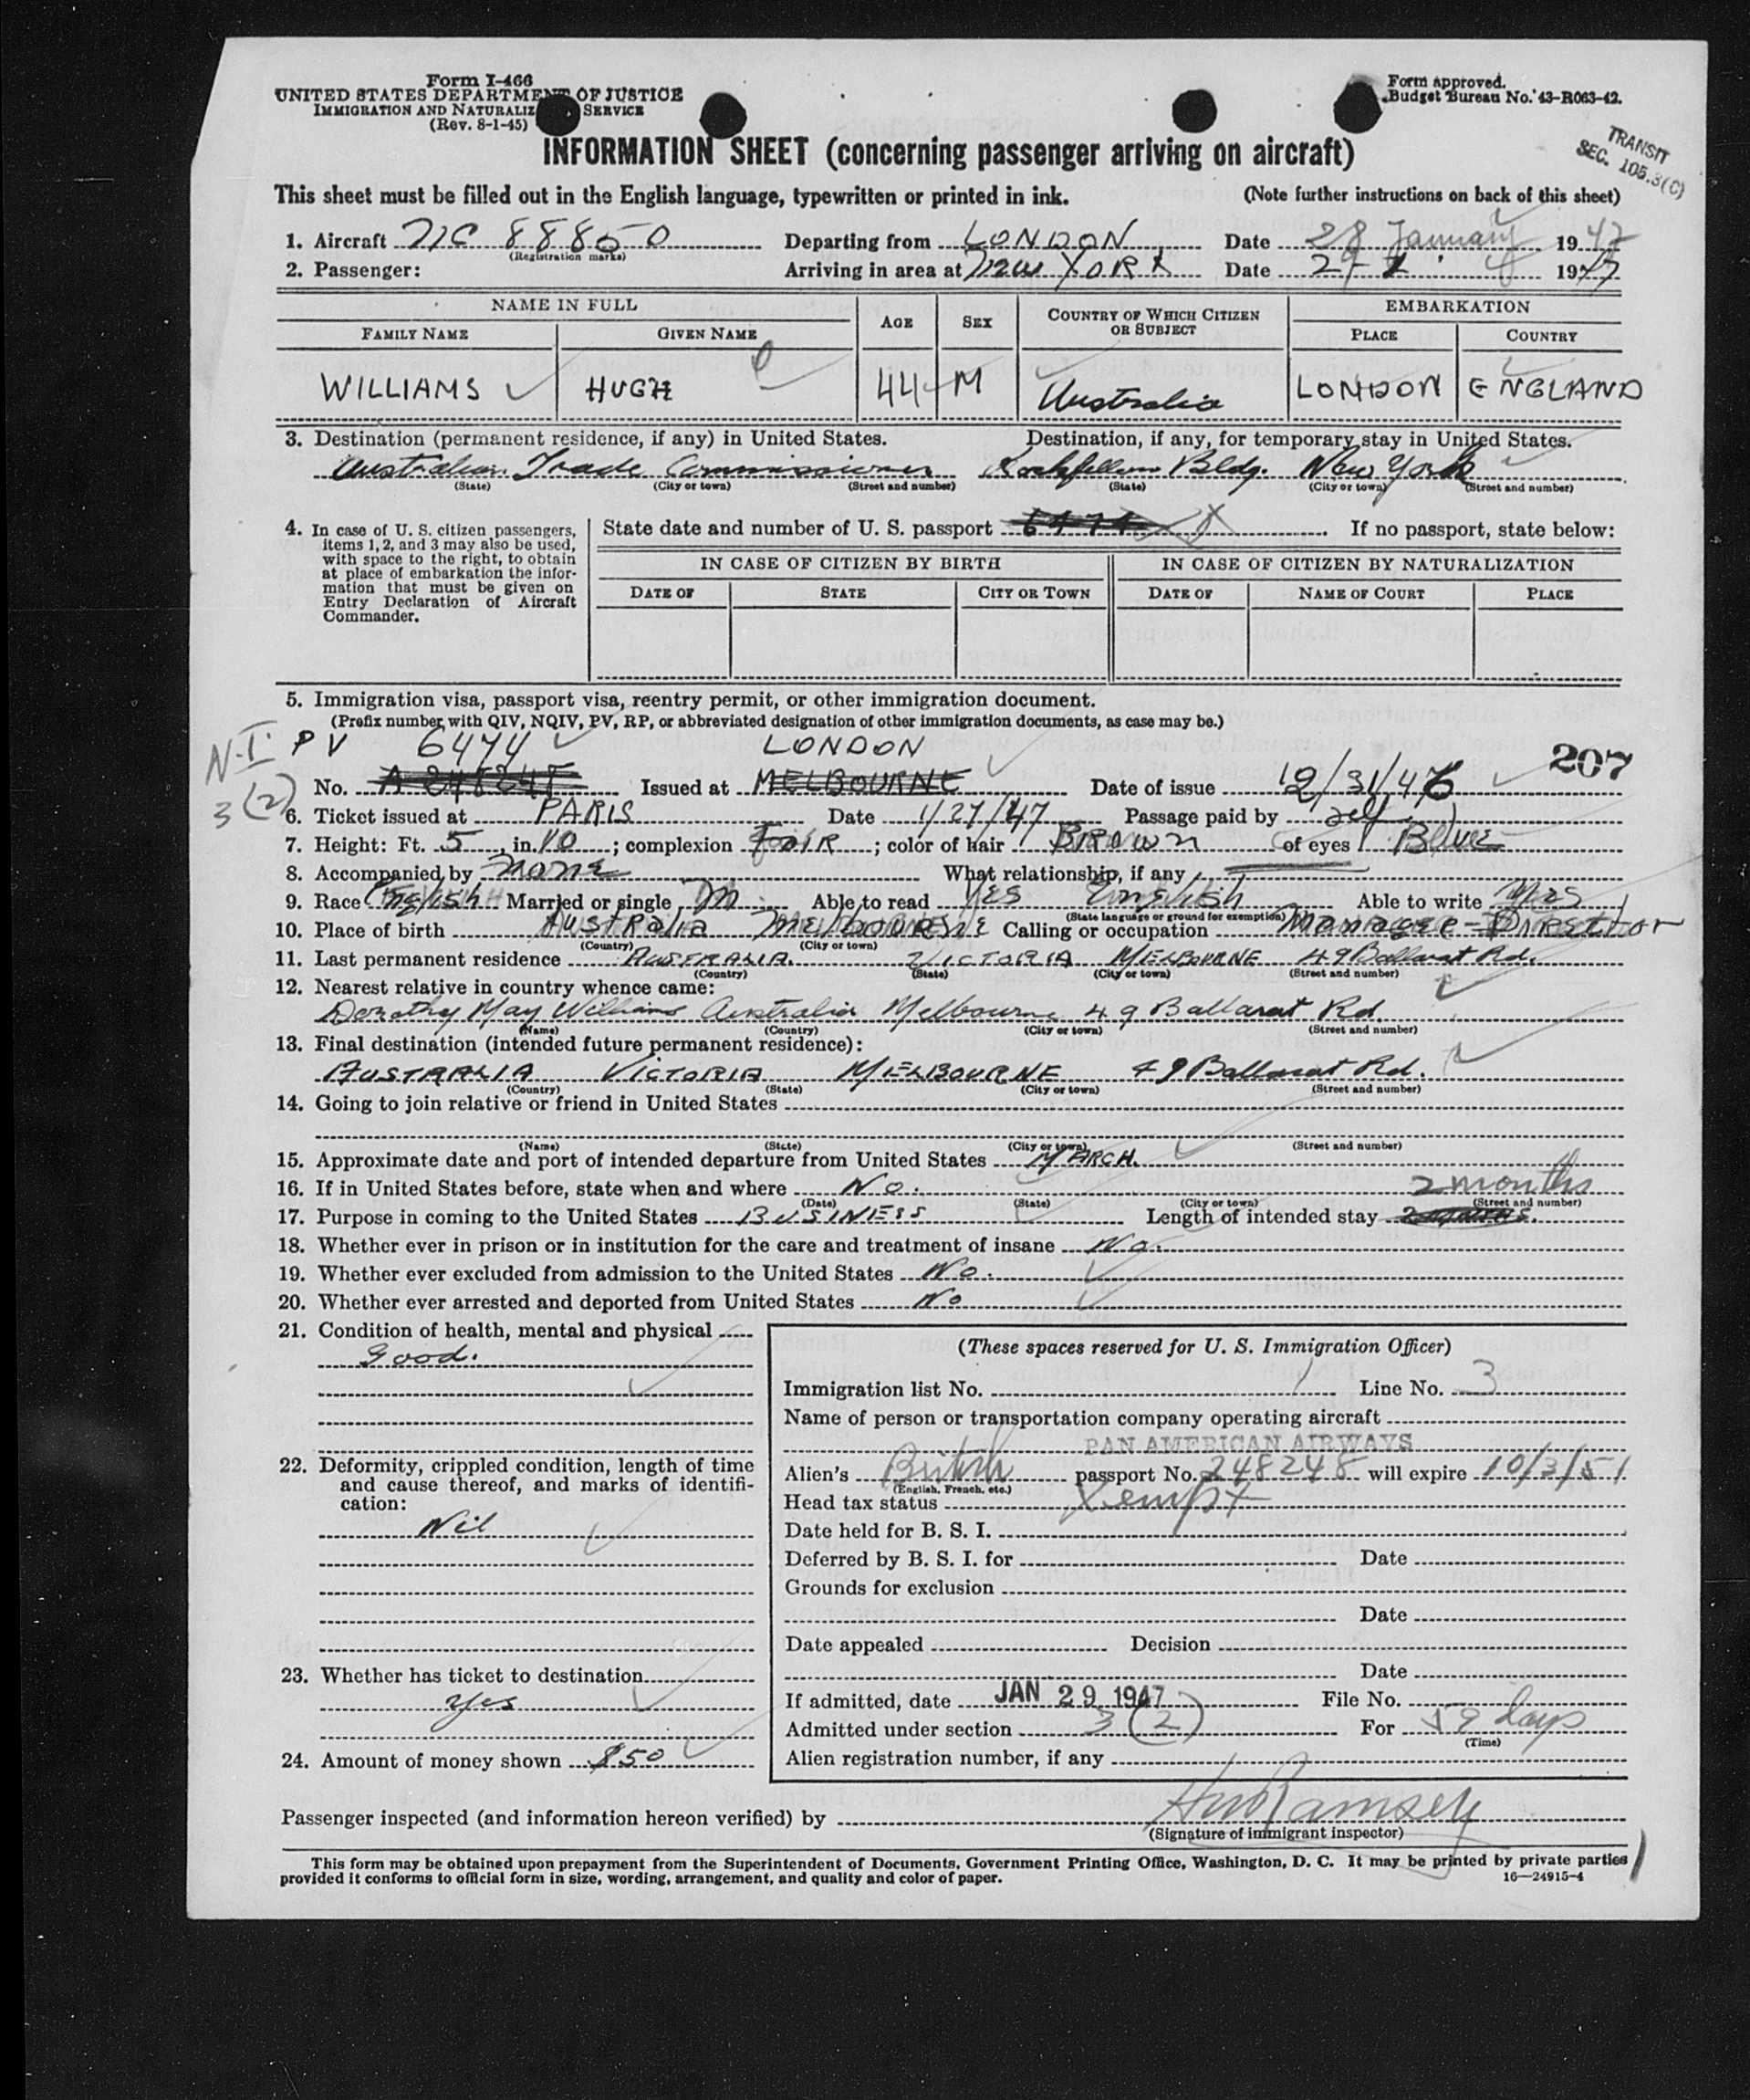 Form I-466
UNITED STATES DEPARTMENT OF JUSTICE
IMMIGRATION AND NATURALIZ SERVICE
(Rev. 8-1-45)
Form approved.
Budget Bureau No. 43-R063-42.
TRANSIT
SEC. 105.3(C)
INFORMATION SHEET (concerning passenger arriving on aircraft)
This sheet must be filled out in the English language, typewritten or printed in ink. (Note further instructions on back of this sheet)
1. Aircraft NC 88850 Departing from LONDON Date 28 January 1947
(Registration marks)
2. Passenger: Arriving in area at New YORK Date 1947
NAME IN FULL AGE SEX COUNTRY OF WHICH CITIZEN OR SUBJECT EMBARKATION
FAMILY NAME GIVEN NAME PLACE COUNTRY
WILLIAMS HUGH 44 M Australia LONDON ENGLAND
3. Destination (permanent residence, if any) in United States. Destination, if any, for temporary stay in United States.
Australian Trade Commissioner Bldg. New York
(State) (City or town) (Street and number) (State) (City or town) (Street and number)
4. In case of U. S. citizen passengers, items 1, 2, and 3 may also be used, with space to the right, to obtain at place of embarkation the information that must be given on Entry Declaration of Aircraft Commander.
State date and number of U. S. passport 6474 If no passport, state below:
IN CASE OF CITIZEN BY BIRTH IN CASE OF CITIZEN BY NATURALIZATION
DATE OF STATE CITY OR TOWN DATE OF NAME OF COURT PLACE
5. Immigration visa, passport visa, reentry permit, or other immigration document.
(Prefix number with QIV, NQIV, PV, RP, or abbreviated designation of other immigration documents, as case may be.)
N-I 3(2)
PV 6474 LONDON 207
No. A 248248 Issued at MELBOURNE Date of issue 12/31/46
6. Ticket issued at PARIS Date 1/27/47 Passage paid by self
7. Height: Ft. 5, in. 10; complexion FaiR; color of hair BROWN of eyes Blue
8. Accompanied by None What relationship, if any
9. Race English Married or single M Able to read Yes English Able to write Yes
(State language or ground for exemption)
10. Place of birth AUSTRalia MelBOURNE Calling or occupation Manager-Director
(Country) (City or town)
11. Last permanent residence AUSTRALIA VICTORIA MELBOURNE 49 Ballarat Rd.
(Country) (State) (City or town) (Street and number)
12. Nearest relative in country whence came:
Dorothy May Williams Australia Melbourne 49 Ballarat Rd
(Name) (Country) (City or town) (Street and number)
13. Final destination (intended future permanent residence):
AUSTRALIA VICTORIA MELBOURNE 49 Ballarat Rd.
(Country) (State) (City or town) (Street and number)
14. Going to join relative or friend in United States
(Name) (State) (City or town) (Street and number)
15. Approximate date and port of intended departure from United States MARCH.
16. If in United States before, state when and where No. 2 months
(Date) (State) (City or town) (Street and number)
17. Purpose in coming to the United States BUSINESS Length of intended stay
18. Whether ever in prison or in institution for the care and treatment of insane No.
19. Whether ever excluded from admission to the United States No.
20. Whether ever arrested and deported from United States No
21. Condition of health, mental and physical
Good.
22. Deformity, crippled condition, length of time and cause thereof, and marks of identification:
Nil
23. Whether has ticket to destination
Yes
24. Amount of money shown $50
(These spaces reserved for U. S. Immigration Officer)
Immigration list No. 1 Line No. 3
Name of person or transportation company operating aircraft
PAN AMERICAN AIRWAYS
Alien's British passport No. 248248 will expire 10/3/51
(English, French, etc.)
Head tax status Xempt
Date held for B. S. I.
Deferred by B. S. I. for Date
Grounds for exclusion
Date
Date appealed Decision
Date
If admitted, date JAN 29 1947 File No.
Admitted under section 3(2) For 59 days
(Time)
Alien registration number, if any
Passenger inspected (and information hereon verified) by Ramsey
(Signature of immigrant inspector)
This form may be obtained upon prepayment from the Superintendent of Documents, Government Printing Office, Washington, D. C. It may be printed by private parties
provided it conforms to official form in size, wording, arrangement, and quality and color of paper. 16—24915-4